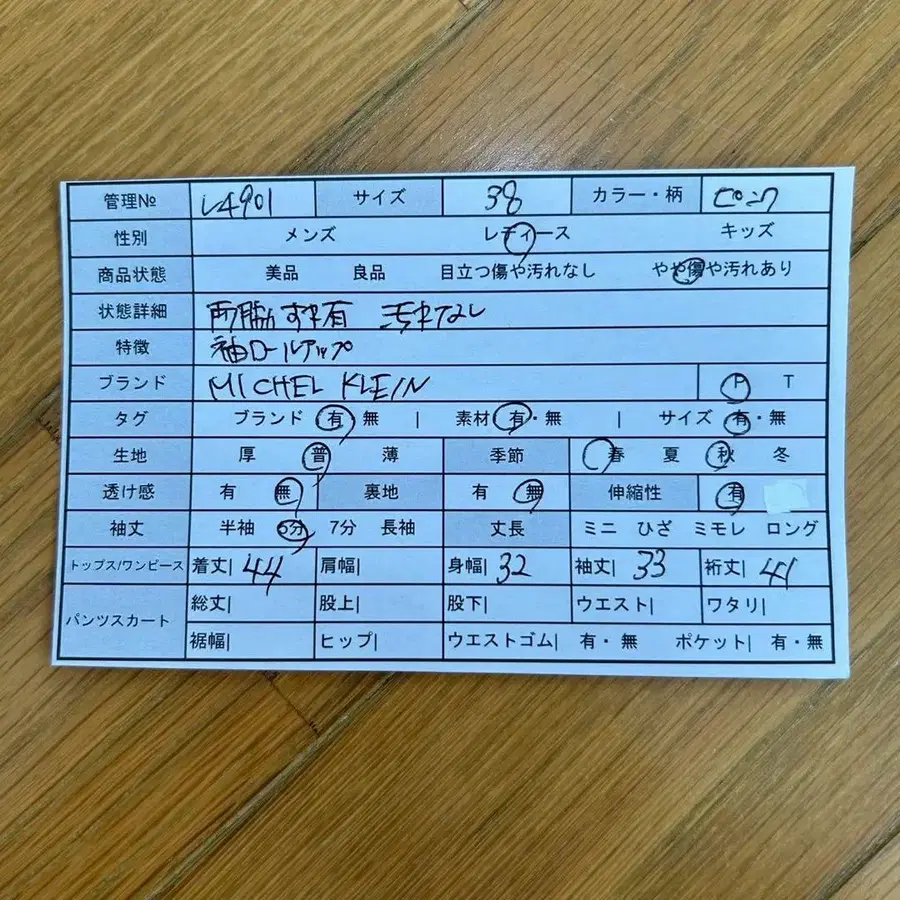 管理№ L4901 サイズ 38 カラー・柄 ピンク
性別 メンズ レディース キッズ
商品状態 美品 良品 目立つ傷や汚れなし やや傷や汚れあり
状態詳細 両脇すれ有 汚れなし
特徴 袖ロールアップ
ブランド MICHEL KLEIN P T
タグ ブランド 有 無 | 素材 有・無 | サイズ 有・無
生地 厚 普 薄 季節 春 夏 秋 冬
透け感 有 無 裏地 有 無 伸縮性 有
袖丈 半袖 5分 7分 長袖 丈長 ミニ ひざ ミモレ ロング
トップス/ワンピース 着丈| 44 肩幅| 身幅| 32 袖丈| 33 裄丈| 41
パンツスカート 総丈| 股上| 股下| ウエスト| ワタリ|
裾幅| ヒップ| ウエストゴム| 有・無 ポケット| 有・無